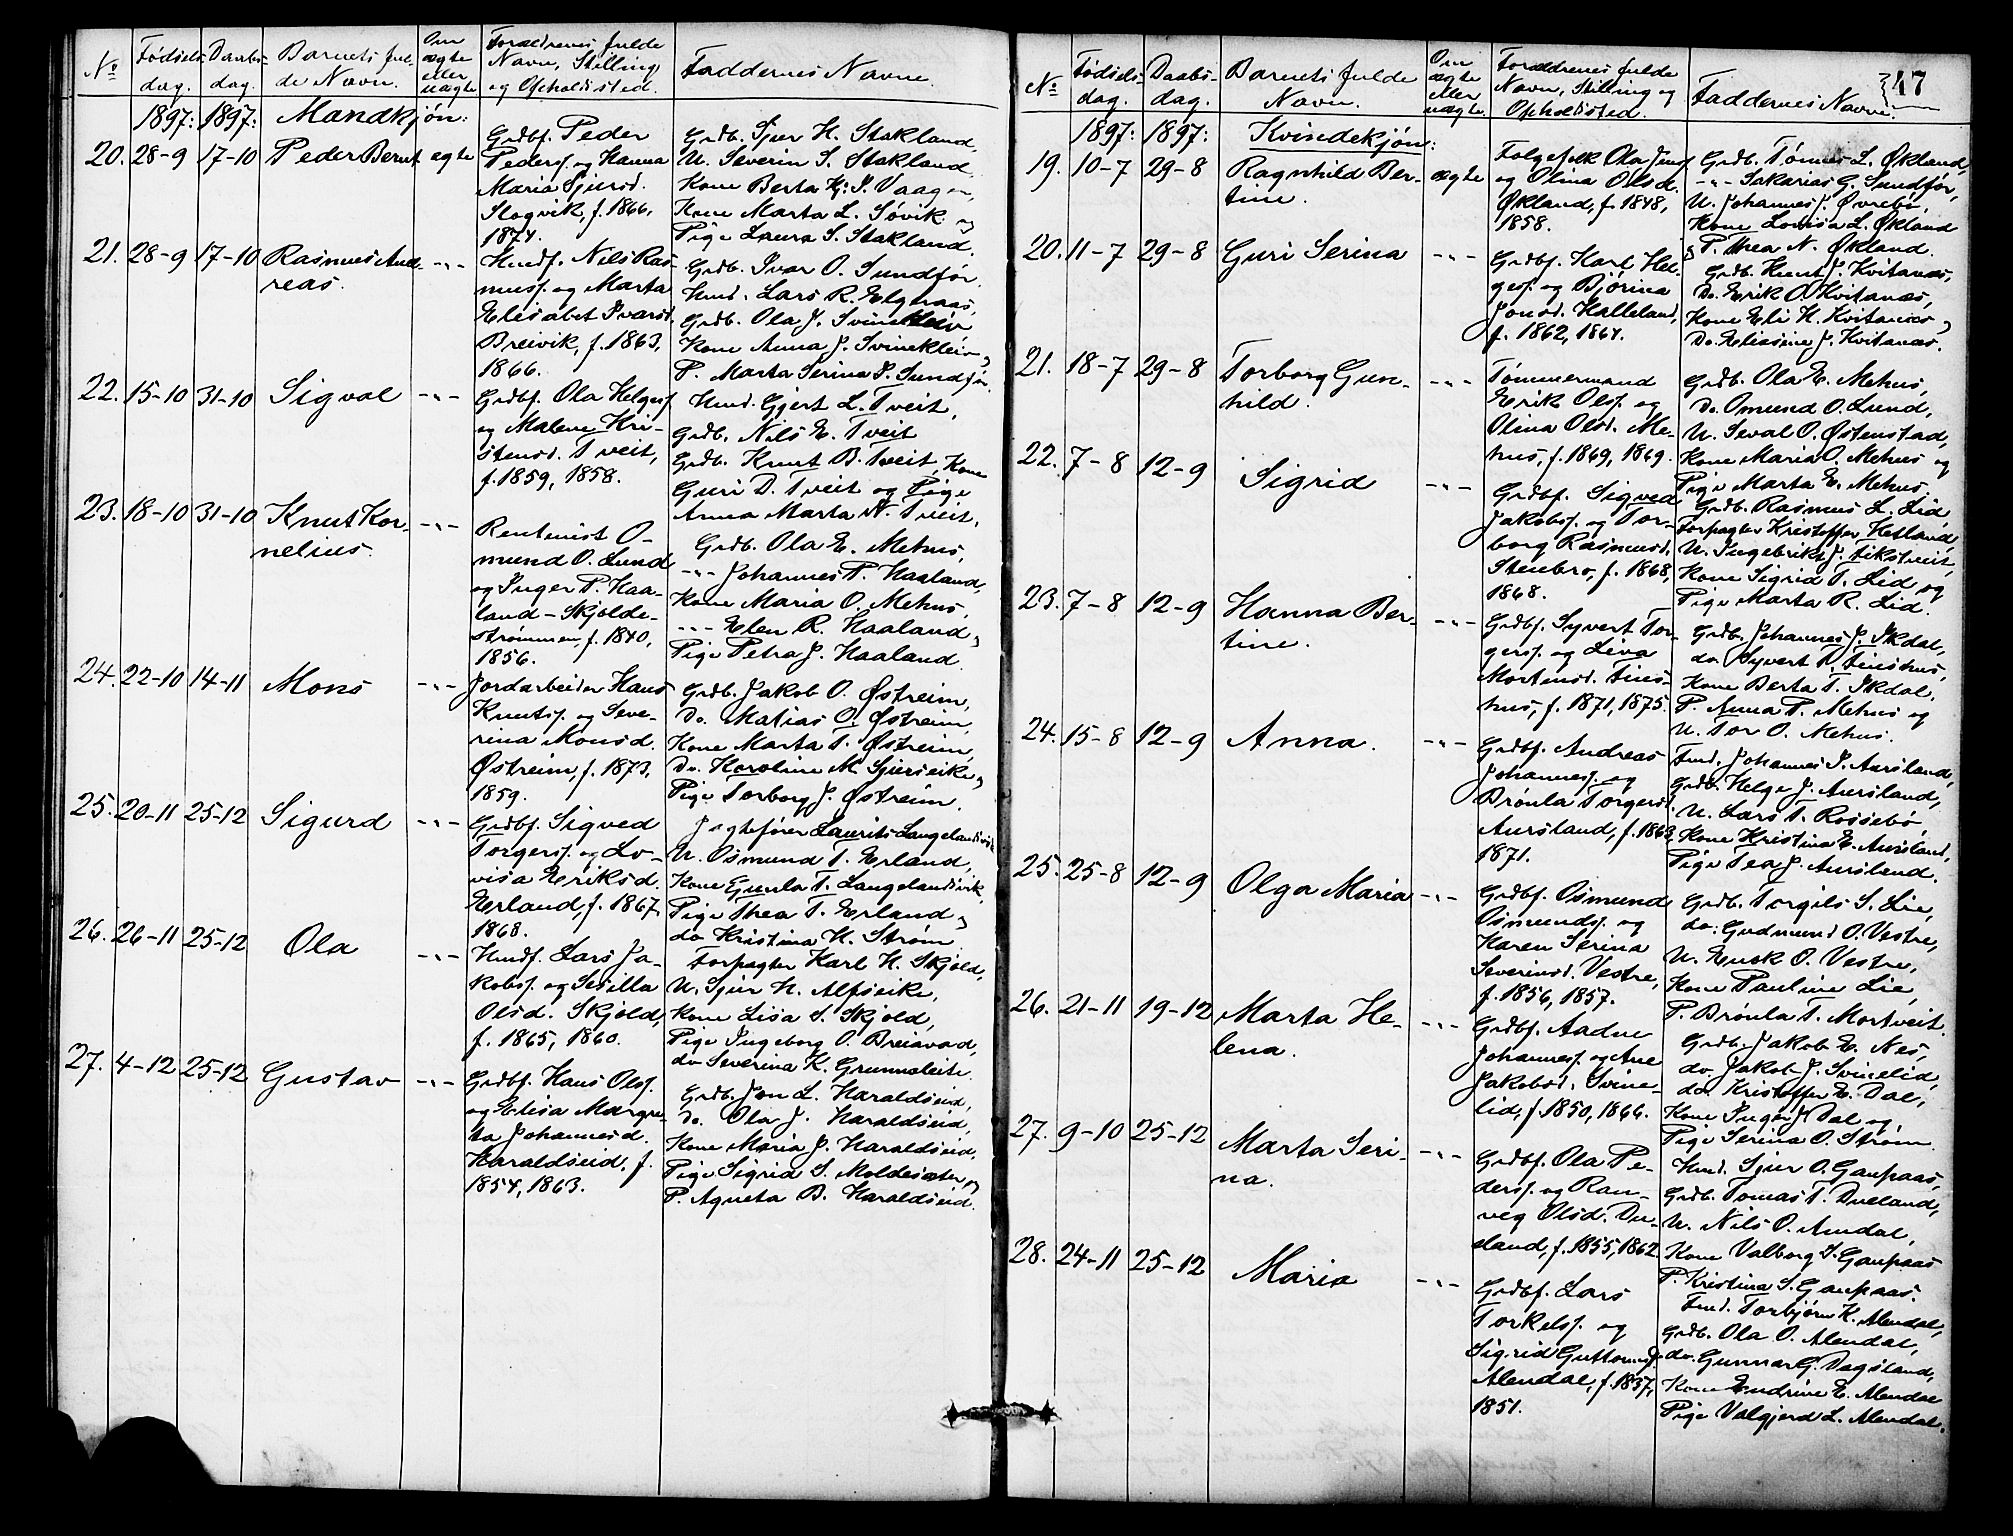 №
Fødsels-
dag.
Daabs-
dag.
Barnets ful-
de Navn.
Om
ægte
eller
uægte
Forældrenes fulde
Navn, Stilling
og Opholdssted.
Faddernes Navne.
1897: 1897: Mandkjøn:
20. 28-9 17-10 Peder Bernt ægte
Grdbf. Peder
Peders. og Hanna
Maria Sjursd.
Slogvik, f. 1866,
1874.
Grdb. Sjur H. Stakland,
U. Severin S. Stakland,
Kone Berta Kj. S. Vaagen,
Kone Marta L. Søvik og
Pige Laura S. Stakland.
21. 28-9 17-10 Rasmus And-
reas. -"-
Husdf. Nils Ras-
muss. og Marta
Elisabet Ivarsd.
Breivik, f. 1863,
1866.
Grdb. Ivar O. Sundfør.
Husd. Lars R. Elgnaas,
Grdb. Ola J. Svinekleiv
Kone Anna J. Svinekleiv og
P. Marta Serina I. Sundfør.
22. 15-10 31-10 Sigval -"-
Grdbf. Ola Helges.
og Malene Kri-
stensd. Tveit,
f. 1859, 1858.
Husd. Gjert L. Tveit,
Grdb. Nils E. Tveit
Grdb. Knut B. Tveit, Kone
Guri D. Tveit og Pige
Anna Marta N. Tveit.
23. 18-10 31-10 Knut Kor-
nelius. -"-
Rentenist O-
mund O. Lund
og Inger P. Haa-
land - Skjolde-
strømmen, f. 1840,
1856.
Grdb. Ola E. Mehus,
-"- Johannes P. Haaland,
Kone Maria O. Mehus,
-"- Elen R. Haaland og
Pige Petra J. Haaland.
24. 22-10 14-11 Mons -"-
Jordarbeider Hans
Knuts. og Seve-
rina Monsd.
Østreim, f. 1873,
1859.
Grdb. Jakob O. Østreim,
Do. Matias O. Østreim,
Kone Marta T. Østreim,
Do. Karoline M. Sjurseike og
Pige Torborg J. Østreim.
25. 20-11 25-12 Sigurd -"-
Grdbf. Sigved
Torgers. og Lo-
visa Eriksd.
Erland, f. 1867,
1868.
Jagtefører Laurits Langelandsvik
U. Osmund T. Erland,
Kone Gunla T. Langelandsvik,
Pige Thea T. Erland og
do Kristina H. Strøm.
26. 26-11 25-12 Ola -"-
Husdf. Lars Ja-
kobs. og Sesilla
Olsd. Skjold,
f. 1865, 1860.
Forpagter Karl H. Skjold,
U. Sjur H. Alfseike,
Kone Lisa S. Skjold,
Pige Ingeborg O. Breiavad,
do Severina K. Grunnsleite.
27. 4-12 25-12 Gustav -"-
Grdbf. Hans Olss.
og Elisa Margre-
ta Johannesd.
Haraldseid, f.
1854, 1863.
Grdb. Jon L. Haraldseid,
Do. Ola J. Haraldseid,
Kone Maria J. Haraldseid,
Pige Sigrid S. Moldesæter og
P. Agneta B. Haraldseid.
17
№
Fødsels-
dag.
Daabs-
dag.
Barnets fulde
Navn.
Om
ægte
eller
uægte
Forældrenes fulde
Navn, Stilling og
Opholdssted.
Faddernes Navne.
1897: 1897: Kvindekjøn:
19. 10-7 29-8 Ragnhild Ber-
tine. ægte
Folgefolk Ola Jens.
og Olina Olsd.
Økland, f. 1848,
1858.
Grdb. Tønnes L. Økland,
-"- Sakarias G. Sundfør,
U. Johannes J. Øvrebø,
Kone Lovisa L. Økland
og P. Thea N. Økland.
20. 11-7 29-8 Guri Serina -"-
Grdbf. Karl Hel-
ges. og Bjørina
Jonsd. Halleland,
f. 1862, 1864.
Grdb. Knut J. Kvitanæs,
Do. Erik O. Kvitanæs,
Kone Eli H. Kvitanæs og
Do. Eliasine J. Kvitanæs.
21. 18-7 29-8 Torborg Gun-
hild. -"-
Tømmermand
Erik Ols. og
Olina Olsd. Me-
hus, f. 1869, 1869.
Grdb. Ola E. Mehus,
Do. Omund O. Lund,
U. Seval O. Østenstad,
Kone Maria O. Mehus og
Pige Marta E. Mehus.
22. 7-8 12-9 Sigrid -"-
Grdbf. Sigved
Jakobs. og Tor-
borg Rasmusd.
Stenbro, f. 1868,
1868.
Grdb. Rasmus L. Lid,
Forpagter Kristoffer Hetland,
U. Ingebrikt J. Fikstveit,
Kone Sigrid T. Lid og
Pige Marta R. Lid.
23. 7-8 12-9 Hanna Ber-
tine. -"-
Grdbf. Syvert Tor-
gers. og Siva
Mortensd. Fins-
hus, f. 1871, 1875.
Grdb. Johannes J. Ikdal,
do. Syvert T. Finshus,
Kone Berta T. Ikdal,
P. Anna P. Mehus og
U. Tor O. Mehus.
24. 15-8 12-9 Anna. -"-
Grdbf. Andreas
Johanness. og
Brønla Torgersd.
Aursland, f. 1863,
1871.
Fmd. Johannes I. Aursland,
Grdb. Helge J. Aursland,
U. Lars T. Rossebø,
Kone Kristina E. Aursland,
Pige Tea J. Aursland.
25. 25-8 12-9 Olga Maria -"-
Grdbf. Osmund
Osmunds. og
Karen Serina
Severinsd. Vestre,
f. 1856, 1857.
Grdb. Torgils S. Lie,
do. Gudmund O. Vestre,
U. Enok O. Vestre,
Kone Pauline Lie,
P. Brønla T. Mortveit.
26. 21-11 19-12 Marta He-
lena. -"-
Grdbf. Aadne
Johanness. og Ane
Jakobsd. Svine-
lid, f. 1850, 1866.
Grdb. Jakob E. Nes,
do. Jakob J. Svinelid,
do. Kristoffer E. Dal,
Kone Inger J. Dal og
Pige Serina O. Strøm.
27. 9-10 25-12 Marta Seri-
na. -"-
Grdbf. Ola Pe-
derss. og Ran-
veg Olsd. Du-
eland, f. 1855, 1862.
Husd. Sjur O. Gaupaas,
Grdb. Tomas T. Dueland,
U. Nils O. Amdal,
Kone Valborg S. Gaupaas
P. Kristina S. Gaupaas.
28. 24-11 25-12 Maria -"-
Grdbf. Lars
Torkels. og
Sigrid Guttormsd.
Alendal, f. 1837,
1851.
Fmd. Torbjørn K. Alendal,
Grdb. Ola O. Alendal,
do. Gunnar G. Dagsland,
Kone Endrine E. Alendal
Pige Valgjerd L. Alendal.